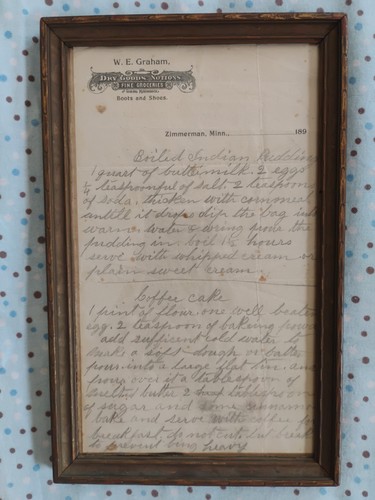 W. E. Graham,
Dry Goods, Notions,
FINE GROCERIES
Boots and Shoes.
Zimmerman, Minn., 189
Boiled Indian Pudding
1 quart of buttermilk. 2 eggs
¼ teaspoonful of salt. 2 teaspoons
of soda. thicken with cornmeal
untill it drops dip the bag into
warm water & wring pour the
pudding in boil 1½ hours
serve with whipped cream or
plain sweet cream.
Coffee cake
1 pint of flour one well beaten
egg. 2 teaspoon of baking powder
add sufficent cold water to
make a soft dough or batter
pour into a large flat tin. and
pour over it a tablespoon of
melted butter 2 tablespoons
of sugar and some cinnamon
bake and serve with coffee for
breakfast, do not cut but break
to prevent being heavy